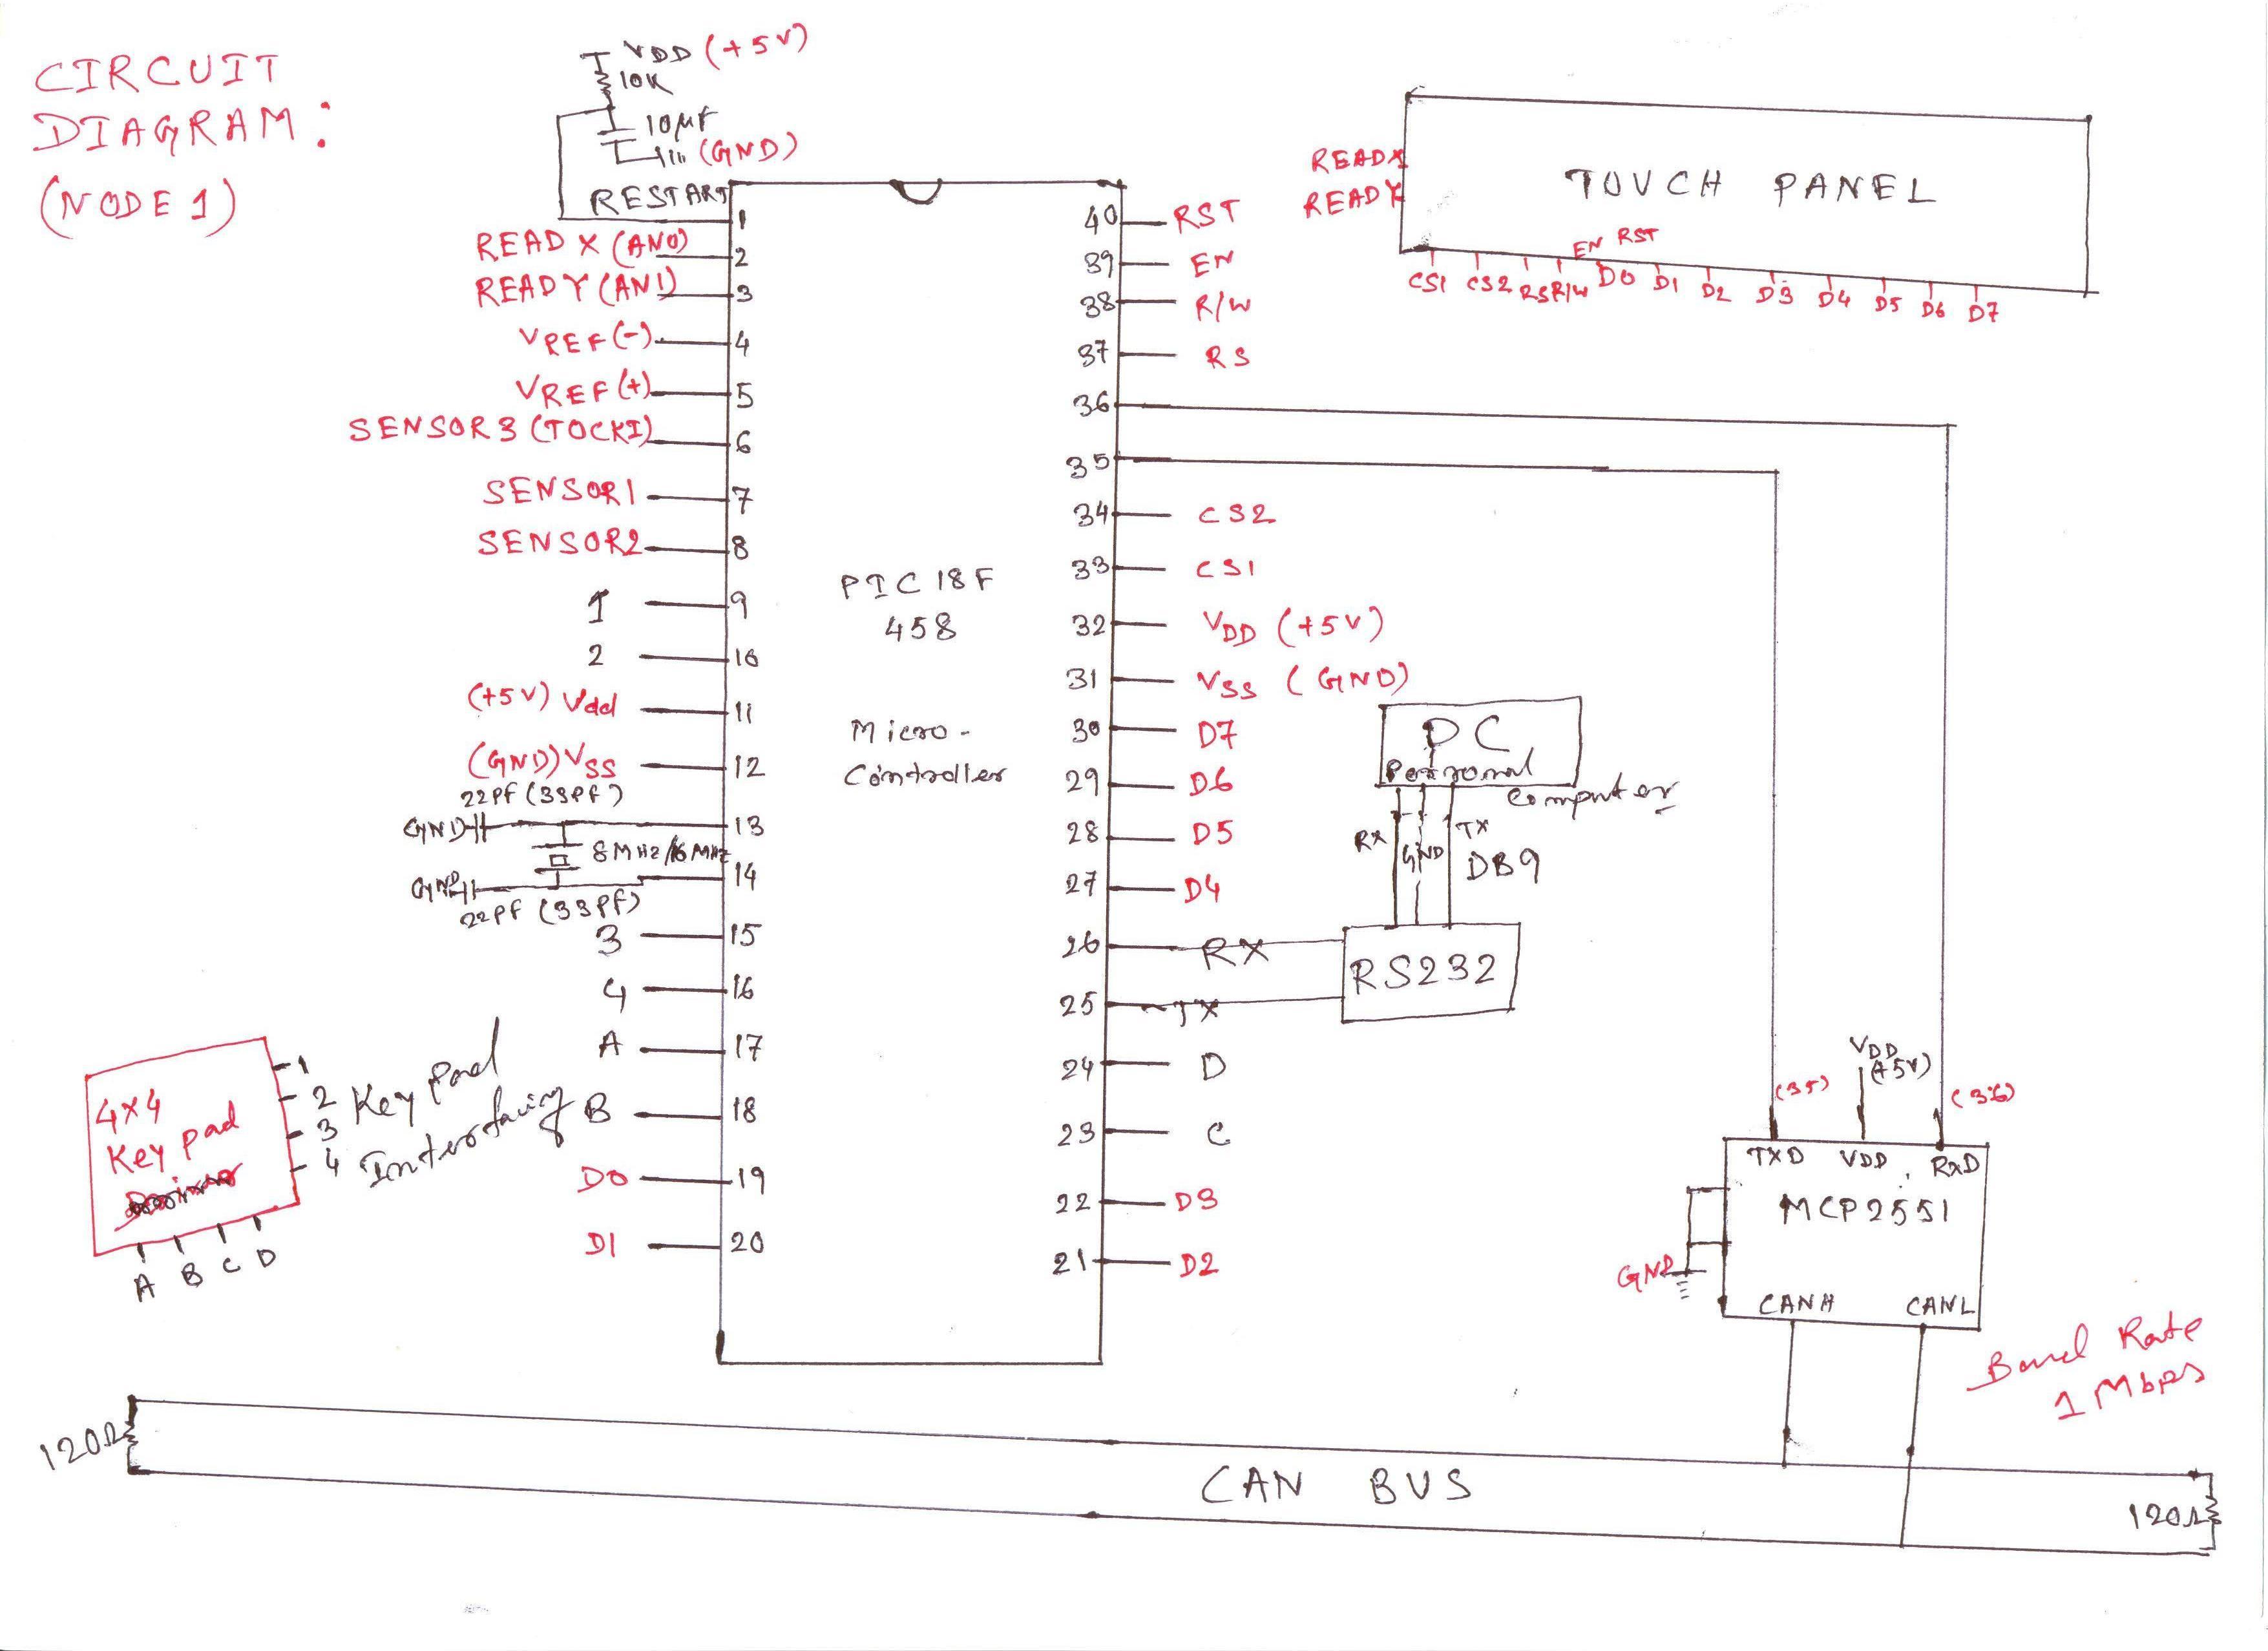 CIRCUIT
DIAGRAM:
(NODE 1)
VDD (+5V)
10K
10µF
(GND)
RESTART
1
READ X (AN0)
2
READ Y (AN1)
3
VREF (-)
4
VREF (+)
5
SENSOR3 (TOCKI)
6
SENSOR1
7
SENSOR2
8
1
9
2
10
(+5V) Vdd
11
(GND) VSS
12
22PF (33PF)
GND
13
8MHz/16MHz
GND
14
22PF (33PF)
3
15
4
16
A
17
B
18
D0
19
D1
20
PIC18F
458
Micro-
Controller
40 RST
39 EN
38 R/W
37 RS
36
35
34 CS2
33 CS1
32 VDD (+5V)
31 VSS (GND)
30 D7
29 D6
28 D5
27 D4
26 RX
25 TX
24 D
23 C
22 D3
21 D2
READX
READY
TOUCH PANEL
EN RST
CS1 CS2 RS R/W D0 D1 D2 D3 D4 D5 D6 D7
PC
Personal
Computer
RX GND TX
DB9
RS232
4X4
Key pad
1
2
3
4
A B C D
Key Pad
Interfacing
(35)
VDD
(+5V)
(36)
TXD VDD RXD
MCP2551
GND
CANH CANL
Baud Rate
1 Mbps
120Ω
CAN BUS
120Ω